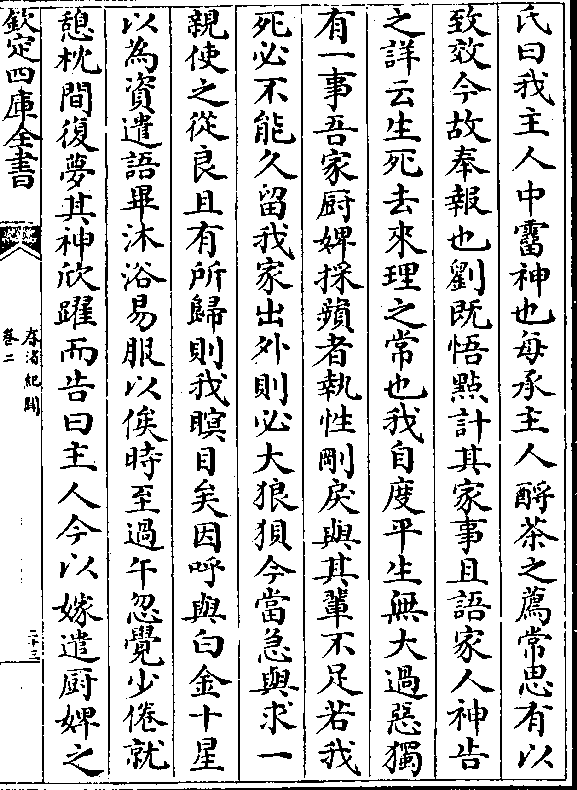 氏曰我主人中霤神也每承主人酹茶之薦常思有以
致效今故奉報也劉既悟點計其家事且語家人神告
之詳云生死去來理之常也我自度平生無大過惡獨
有一事吾家厨婢採蘋者執性剛戾與其輩不足若我
死必不能久留我家出外則必大狼狽今當急與求一
親使之從良且有所歸則我瞑目矣因呼與白金十星
以為資遣語畢沐浴易服以俟時至過午忽覺少倦就
憩枕間復夢其神欣躍而告曰主人今以嫁遣厨婢之
欽定四庫全書
春渚紀聞
卷二
二十三